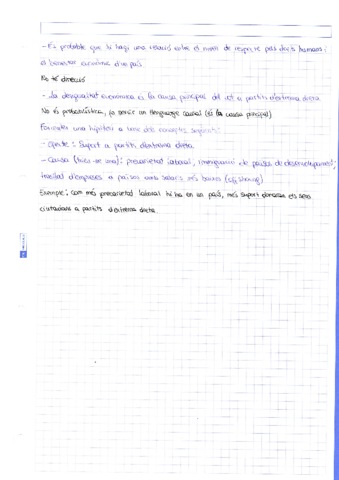 - És probable que hi hagi una relació entre el nivell de respecte pels drets humans i
el benestar econòmic d'un país.
No té direcció
- La desigualtat econòmica és la causa principal del vot a partits d'extrema dreta
No és probabilística, fa servir un llenguatge causal (és la causa principal)
Formular una hipòtesi a base dels conceptes següents:
- efecte: Suport a partits d'extrema dreta.
- Causa (tria-ne una): precarietat laboral, immigració de països de desenvolupament,
trasllat d'empreses a països amb salaris més baixos (offshoring)
Exemple: com més precarietat laboral hi ha en un país, més suport donaran els seus
ciutadans a partits d'extrema dreta.